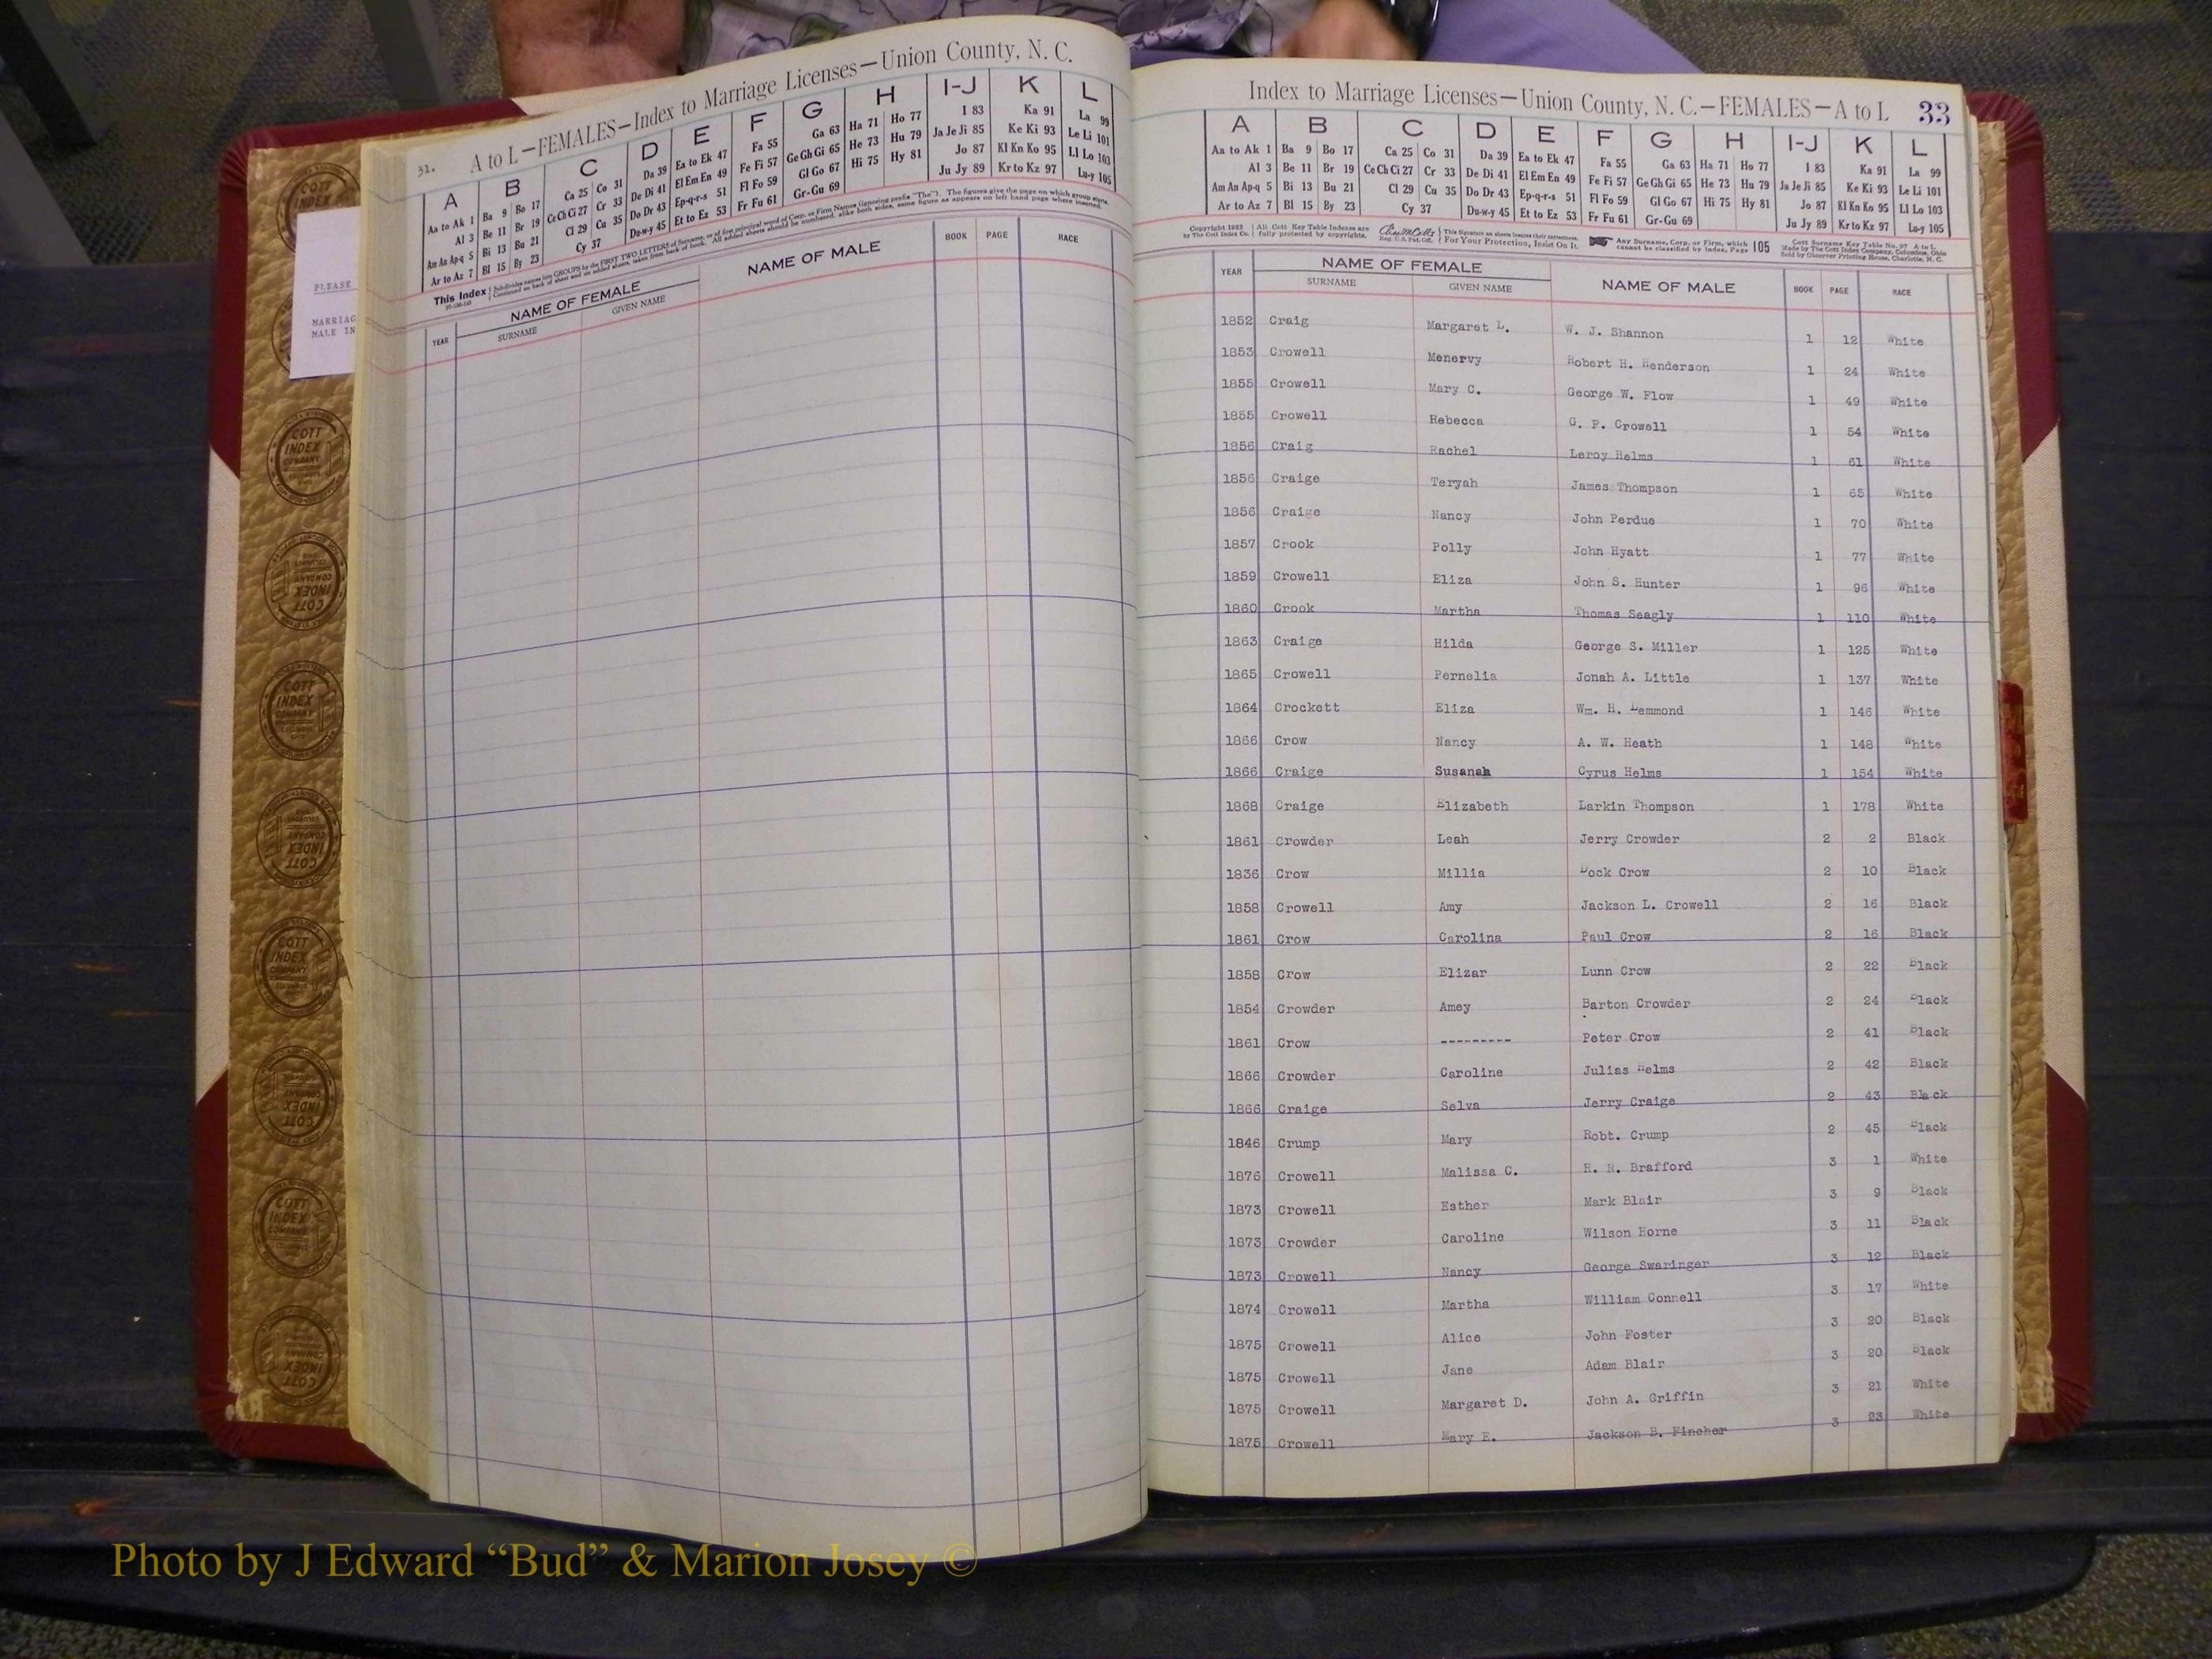 31. A to L—FEMALES—Index to Marriage Licenses—Union County, N. C.
A B C D E F G H I-J K L
Aa to Ak 1 Ba 9 Bo 17 Ca 25 Co 31 Da 39 Ea to Ek 47 Fa 55 Ga 63 Ha 71 Ho 77 I 83 Ka 91 La 99
Al 3 Be 11 Br 19 Ce Ch Ci 27 Cr 33 De Di 41 El Em En 49 Fe Fi 57 Ge Gh Gi 65 He 73 Hu 79 Ja Je Ji 85 Ke Ki 93 Le Li 101
Am An Ap-q 5 Bi 13 Bu 21 Cl 29 Cu 35 Do Dr 43 Ep-q-r-s 51 Fl Fo 59 Gl Go 67 Hi 75 Hy 81 Jo 87 Kl Kn Ko 95 Ll Lo 103
Ar to Az 7 Bl 15 By 23 Cy 37 Du-w-y 45 Et to Ez 53 Fr Fu 61 Gr-Gu 69 Ju Jy 89 Kr to Kz 97 Lu-y 105
This Index
YEAR NAME OF FEMALE NAME OF MALE BOOK PAGE RACE
SURNAME GIVEN NAME
PLEASE
MARRIAG
MALE IN
COTT INDEX COMPANY
Index to Marriage Licenses—Union County, N. C.—FEMALES—A to L 33
A B C D E F G H I-J K L
Aa to Ak 1 Ba 9 Bo 17 Ca 25 Co 31 Da 39 Ea to Ek 47 Fa 55 Ga 63 Ha 71 Ho 77 I 83 Ka 91 La 99
Al 3 Be 11 Br 19 Ce Ch Ci 27 Cr 33 De Di 41 El Em En 49 Fe Fi 57 Ge Gh Gi 65 He 73 Hu 79 Ja Je Ji 85 Ke Ki 93 Le Li 101
Am An Ap-q 5 Bi 13 Bu 21 Cl 29 Cu 35 Do Dr 43 Ep-q-r-s 51 Fl Fo 59 Gl Go 67 Hi 75 Hy 81 Jo 87 Kl Kn Ko 95 Ll Lo 103
Ar to Az 7 Bl 15 By 23 Cy 37 Du-w-y 45 Et to Ez 53 Fr Fu 61 Gr-Gu 69 Ju Jy 89 Kr to Kz 97 Lu-y 105
Copyright 1932 by The Cott Index Co. All Cott Key Table Indexes are fully protected by copyrights. For Your Protection, Insist On It. Any Surname, Corp. or Firm, which cannot be classified by index, Page 105
YEAR NAME OF FEMALE NAME OF MALE BOOK PAGE RACE
SURNAME GIVEN NAME
1852 Craig Margaret L. W. J. Shannon 1 12 White
1853 Crowell Menervy Robert H. Henderson 1 24 White
1855 Crowell Mary C. George W. Flow 1 49 White
1855 Crowell Rebecca G. F. Crowell 1 54 White
1856 Craig Rachel Leroy Helms 1 61 White
1856 Craige Teryah James Thompson 1 65 White
1856 Craige Nancy John Perdue 1 70 White
1857 Crook Polly John Hyatt 1 77 White
1859 Crowell Eliza John S. Hunter 1 96 White
1860 Crook Martha Thomas Seagly 1 110 White
1863 Craige Hilda George S. Miller 1 125 White
1865 Crowell Pernelia Jonah A. Little 1 137 White
1864 Crockett Eliza Wm. H. Lemmond 1 146 White
1866 Crow Nancy A. W. Heath 1 148 White
1866 Craige Susanah Cyrus Helms 1 154 White
1868 Craige Elizabeth Larkin Thompson 1 178 White
1861 Crowder Leah Jerry Crowder 2 2 Black
1836 Crow Millia Dock Crow 2 10 Black
1858 Crowell Amy Jackson L. Crowell 2 16 Black
1861 Crow Carolina Paul Crow 2 16 Black
1858 Crow Elizar Lunn Crow 2 22 Black
1854 Crowder Amey Barton Crowder 2 24 Black
1861 Crow --------- Peter Crow 2 41 Black
1866 Crowder Caroline Julias Helms 2 42 Black
1866 Craige Selva Jerry Craige 2 43 Black
1846 Crump Mary Robt. Crump 2 45 Black
1876 Crowell Malissa C. R. R. Brafford 3 1 White
1873 Crowell Esther Mark Blair 3 9 Black
1873 Crowder Caroline Wilson Horne 3 11 Black
1873 Crowell Nancy George Swaringer 3 12 Black
1874 Crowell Martha William Connell 3 17 White
1875 Crowell Alice John Foster 3 20 Black
1875 Crowell Jane Adam Blair 3 20 Black
1875 Crowell Margaret D. John A. Griffin 3 21 White
1875 Crowell Mary E. Jackson B. Fincher 3 23 White
Photo by J Edward “Bud” & Marion Josey ©